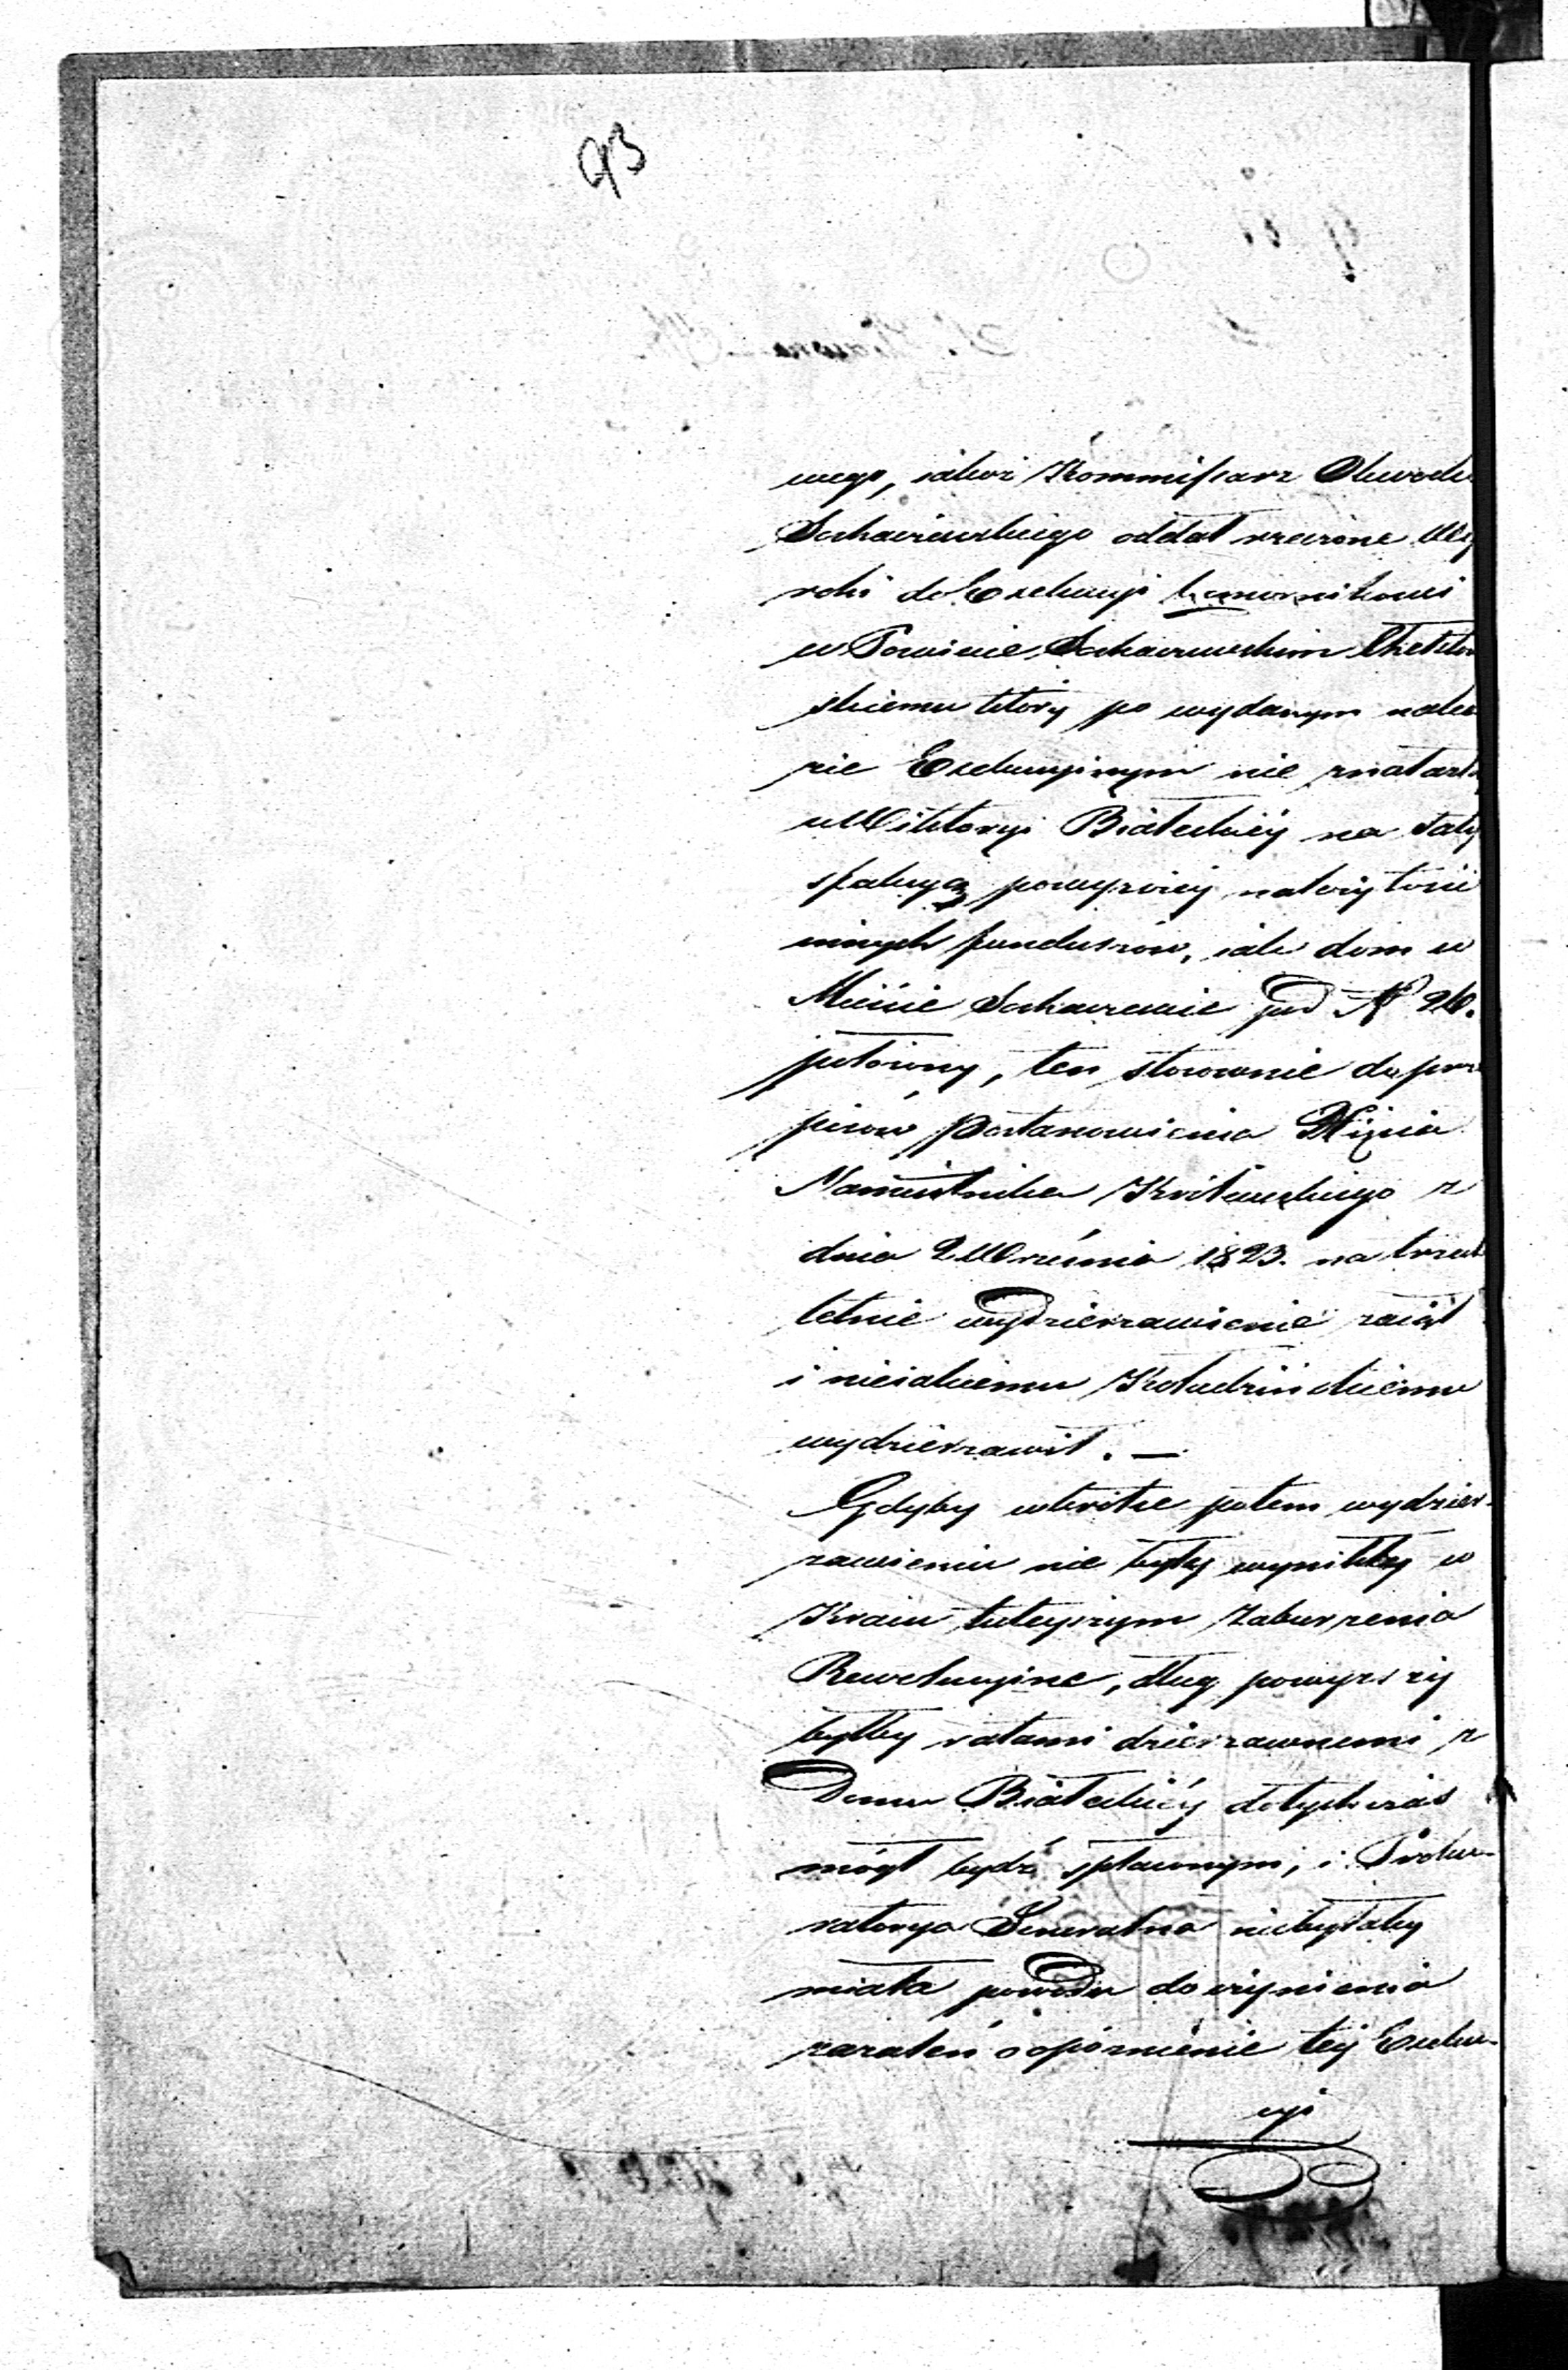 93
wego, iakoż Kommissarz Obwodu
Sochaczewskiego oddał rzeczone Wy
roki do Exekucyi komornikowi
w Powiecie Sochaczewskim
skiemu który po wydanym naka
zie Exekucyinym nie znalazłszy
u Wiktoryi Białeckiéy na satys
fakcyą powyższéy należytości
innych funduszów, iak dom w
Mieście Sochaczewie pod No 26.
położony, ten stosownie do prze
pisów Postanowienia Xięcia
Namiestnika Królewskiego z
dnia 2 Września 1823. na trzech
letnie wydzierzawienie zaiął
i nieiakiemu Kołudzińskiemu
wydzierzawił. —
Gdyby wkrótce potem wydzier-
zawieniu nie były wynikły w
Kraiu tuteyszym zaburzenia
Rewolucyine, dług powyższy
byłby ratami dzierzawnemi z
Domu Białeckiéy dotychczas
mógł bydź spłaconym, i Proku-
ratorya Generalna niebyłaby
miała powodu do czynienia
zażaleń o opóźnienie téy Exeku-
cyi